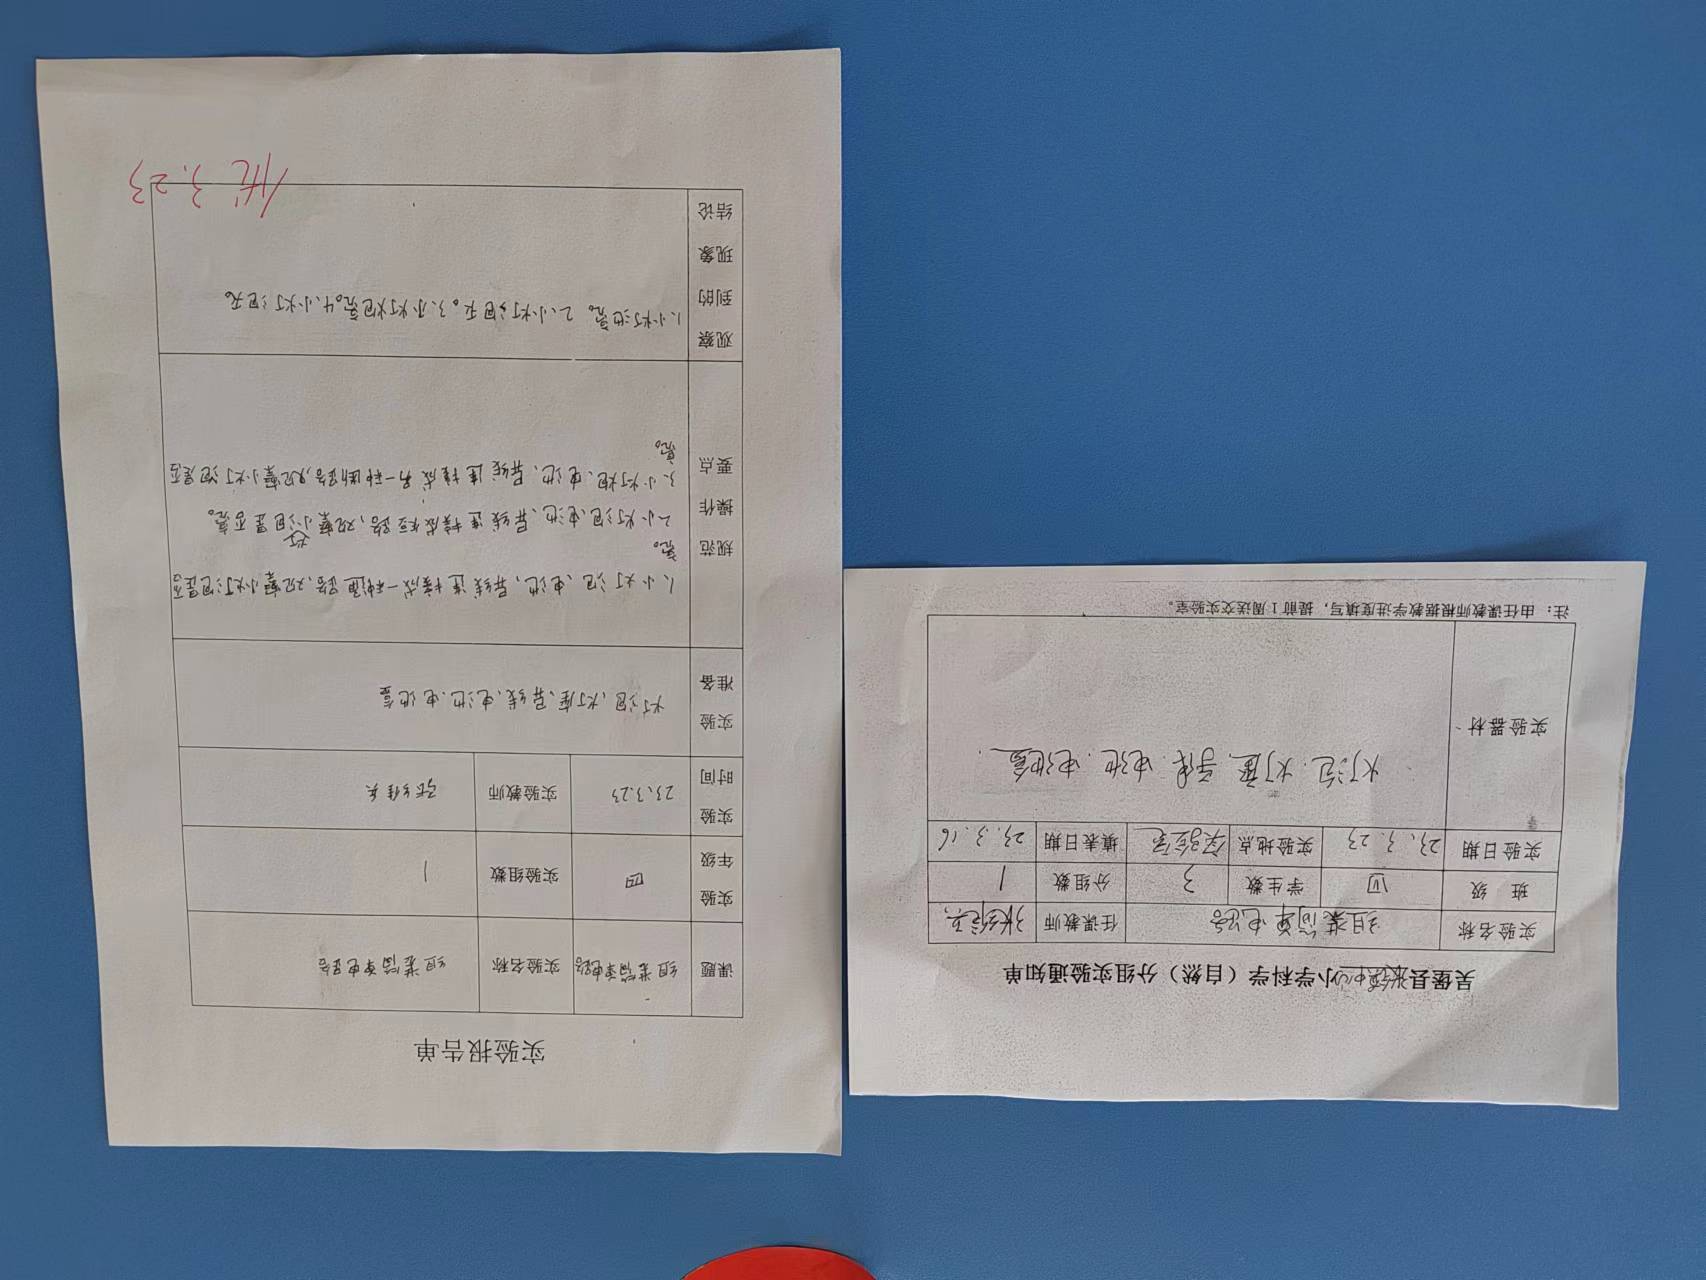 实验报告单
课题 组装简单电路 实验名称 组装简单电路
实验年级 四 实验组数 1
实验时间 23.3.23 实验教师
实验准备 灯泡、灯座、导线、电池、电池盒
规范操作要点
1、小灯泡、电池、导线连接成一种通路,观察小灯泡是否
亮。
2、小灯泡、电池、导线连接成短路,观察小灯泡是否亮。
3、小灯炮、电池、导线连接成另一种断路,观察小灯泡是否
亮。
观察到的现象结论
1、小灯池亮。2、小灯泡不。3、小灯炮亮。4、小灯泡不
优 3.23
吴堡县小学科学（自然）分组实验通知单
实验名称 组装简单电路 任课教师
班级 四 学生数 3 分组数 1
实验日期 23.3.23 实验地点 实验室 填表日期 23.3.16
实验器材 灯泡、灯座、导线、电池、电池盒.
注：由任课教师根据教学进度填写，提前1周送交实验室。